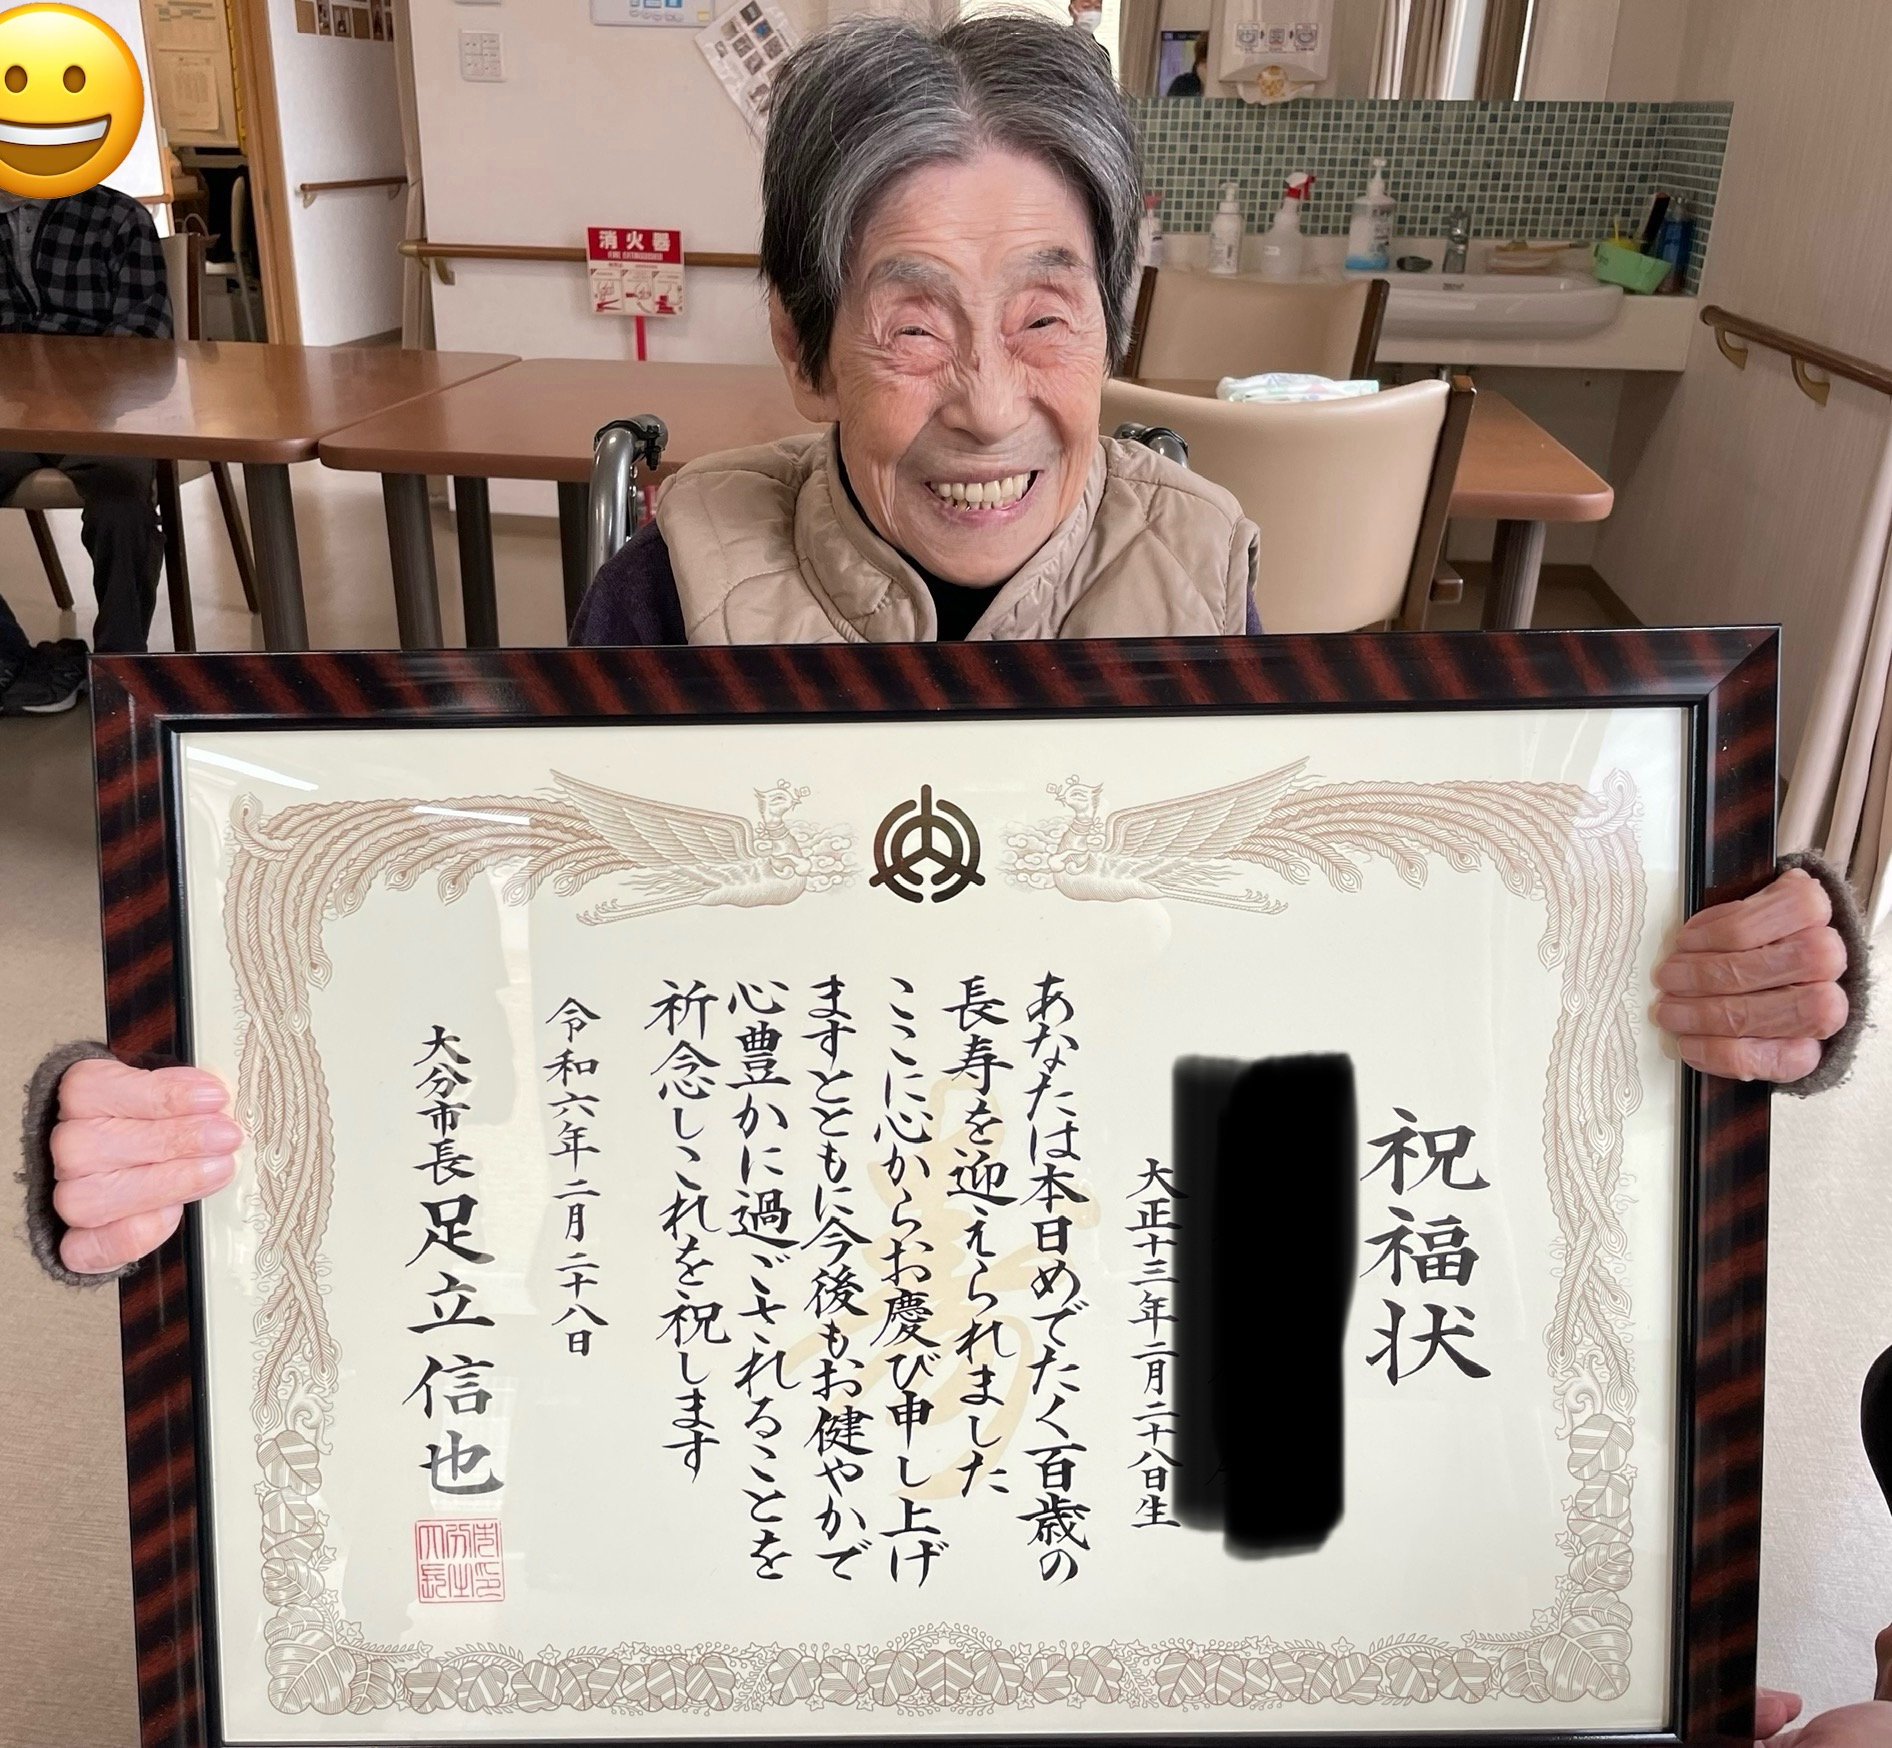 消火器
FIRE EXTINGUISHER
祝福状
大正十三年二月二十八日生
あなたは本日めでたく百歳の
長寿を迎えられました
ここに心からお慶び申し上げ
ますとともに今後もお健やかで
心豊かに過ごされることを
祈念しこれを祝します
令和六年二月二十八日
大分市長 足立信也